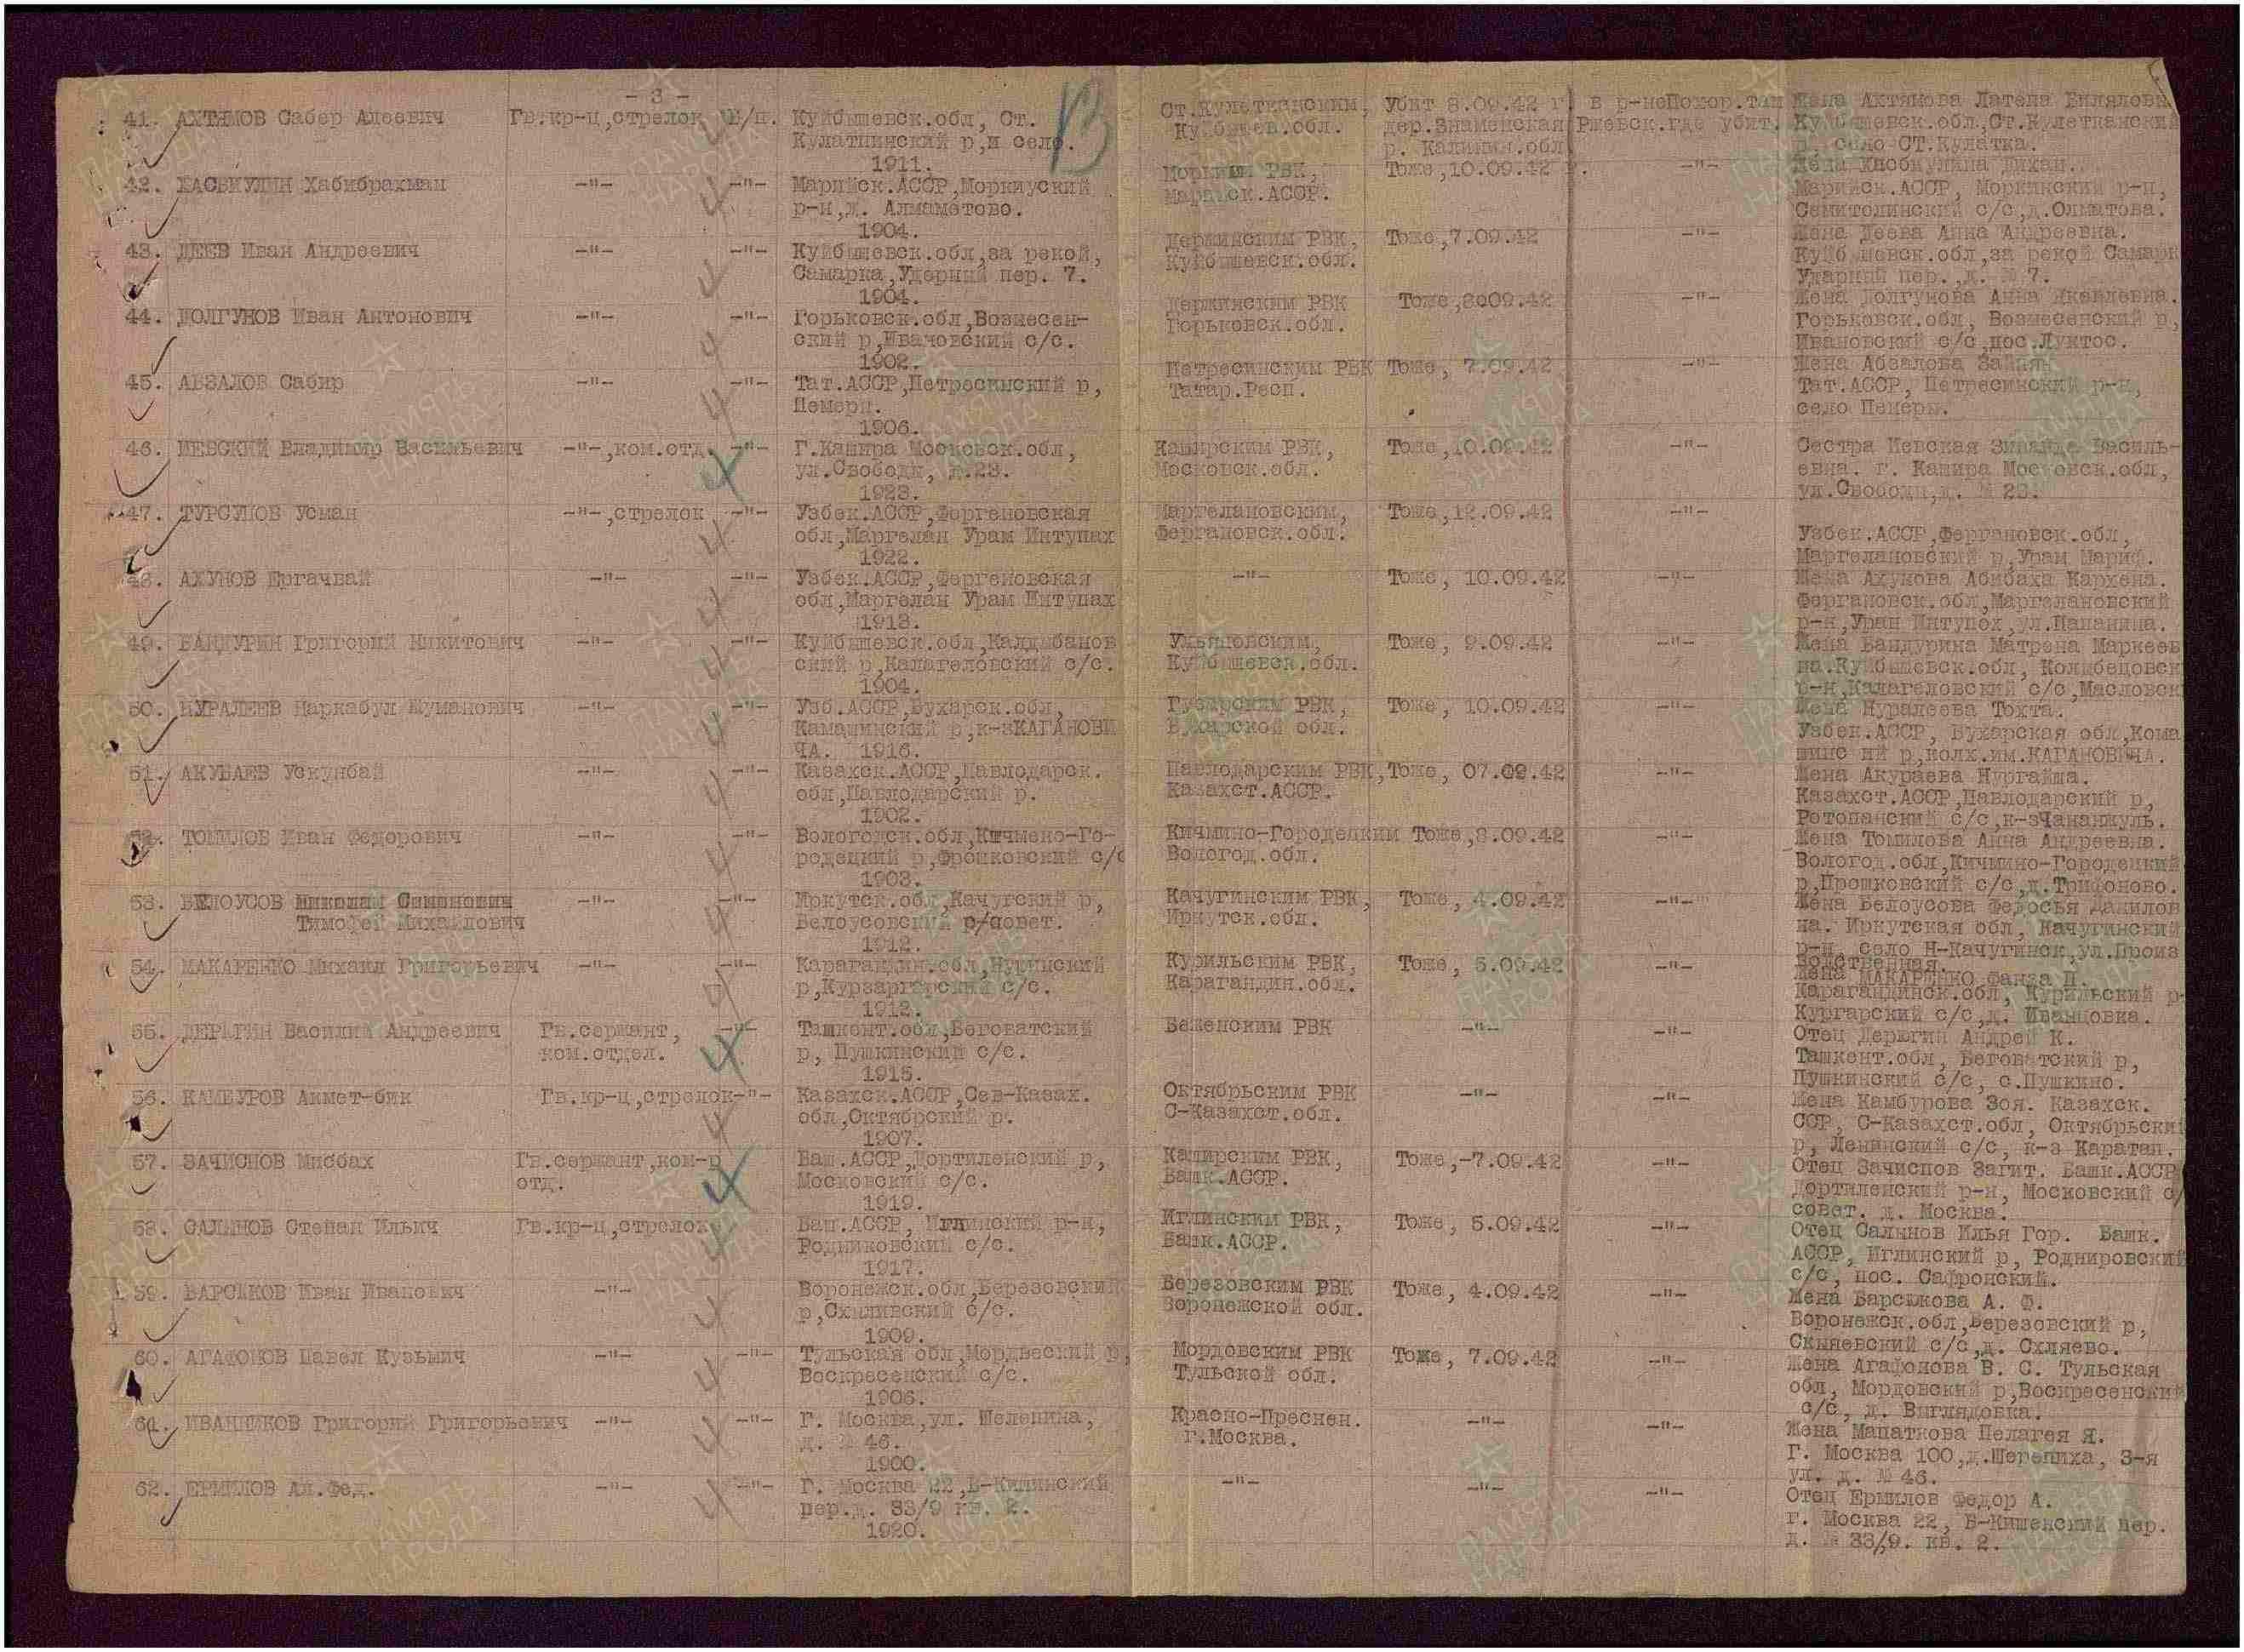 - 3 -
41. АХТЯМОВ Сабер Алеевич Гв.кр-ц,стрелок Б/п. Куйбышевск.обл, Ст. Ст.Кулеткинским, Убит 8.09.42 г. в р-не Похор.там Жена Ахтямова Латепа Билялов
Кулаткинский р,н село. Куйбышев.обл. дер.Знаменская Ржевск.где убит. Куйбышевск.обл,Ст.Кулеткинский
1911. р. Калинин.обл село СТ.Кулатка.
42. ХАСЬКУЛИН Хабибрахман -"- -"- Марийск.АССР,Моркиуский Моркиным РВК, Тоже,10.09.42 г. -"- Жена
р-н,д. Алмаметово. Марийск.АССР. Марийск.АССР, Моркинский р-н,
1904. Семитолинский с/с,д.Олматова.
43. ДЕЕВ Иван Андреевич -"- -"- Куйбышевск.обл,за рекой, Держинским РВК, Тоже,7.09.42 -"- Жена Деева Анна Андреевна.
Самарка,Ударный пер. 7. Куйбышевск.обл. Куйбышевск.обл,за рекой Самарк
1904. Ударный пер.,д. № 7.
44. ДОЛГУНОВ Иван Антонович -"- -"- Горьковск.обл,Вознесен- Держинским РВК Тоже,8.09.42 -"- Жена Долгунова Анна Яковлевна.
ский р,Ивановский с/с. Горьковск.обл. Горьковск.обл, Вознесенский р,
1902. Ивановский с/с,пос.Луктос.
45. АБЗАЛОВ Сабир -"- -"- Тат.АССР,Петресинский р, Петресинским РВК Тоже, 7.09.42 -"- Жена Абзалова Зайнян
Пемери. Татар.Респ. Тат.АССР, Петресинский р-н,
1906. село Пемеры.
46. НЕВСКИЙ Владимир Васильевич -"-,ком.отд. -"- Г.Кашира Московск.обл, Каширским РВК, Тоже,10.09.42 -"- Сестра Невская Зинаида Василь-
ул.Свободы, д.23. Московск.обл. евна. г. Кашира Московск.обл,
1923. ул.Свободы,д. № 23.
47. ТУРСУНОВ Усман -"-,стрелок -"- Узбек.АССР,Фергеновская Маргелановским, Тоже,12.09.42 -"-
обл,Маргелан Урам Интупах Фергановск.обл. Узбек.АССР,Фергановск.обл,
1922. Маргелановский р,Урам Мариф.
48. АХУНОВ Ергачвай -"- -"- Узбек.АССР,Фергеновская -"- Тоже, 10.09.42 -"- Жена Ахунова Абибаха Кархена.
обл,Маргелан Урам Интупах Фергановск.обл,Маргелановский
1913. р-н,Уран Интупох,ул.Папанина.
49. БАНДУРИН Григорий Никитович -"- -"- Куйбышевск.обл,Калдыбанов Ульяновским, Тоже, 9.09.42 -"- Жена Бандурина Матрена Маркеев
ский р,Калагеловский с/с. Куйбышевск.обл. на.Куйбышевск.обл, Колдбецовск
1904. р-н,Калагеловский с/с,Масловск
50. НУРАЛЕЕВ Наркабул Шуманович -"- -"- Узб.АССР,Бухарск.обл, Гузарским РВК, Тоже, 10.09.42 -"- Жена Нуралеева Тохта.
Камашинский р,к-зКАГАНОВИ Бухарской обл. Узбек.АССР, Бухарская обл,Кома
ЧА. 1916. шинский р,колх.им.КАГАНОВИЧА.
51. АКУБАЕВ Ускунбай -"- -"- Казахск.АССР,Павлодарск. Павлодарским РВК, Тоже, 07.09.42 -"- Жена Акураева Нургайша.
обл,Павлодарский р. Казахст.АССР. Казахст.АССР,Павлодарский р,
1902. Ротопанский с/с,к-зЧананкуль.
52. ТОМИЛОВ Иван Федорович -"- -"- Вологодск.обл,Кичмено-Го- Кичмино-Городецким Тоже,8.09.42 -"- Жена Томилова Анна Андреевна.
родецкий р,Фрошковский с/с Вологод.обл. Вологод.обл,Кичмино-Городецкий
1903. р,Прошковский с/с,д.Трифоново.
53. БЕЛОУСОВ Николай Семенович -"- -"- Иркутск.обл,Качугский р, Качугинским РВК, Тоже, 4.09.42 -"- Жена Белоусова Федосья Данилов
Тимофей Михайлович Белоусовский с/совет. Иркутск.обл. на. Иркутская обл, Качугинский
1912. р-н, село Н-Качугинск,ул.Произ
водственная.
54. МАКАРЕНКО Михаил Григорьевич -"- -"- Карагандин.обл,Нуринский Курильским РВК, Тоже, 5.09.42 -"- Жена МАКАРЕНКО Фаиза П.
р,Курзаргарский с/с. Карагандин.обл. Карагандинск.обл, Курильский р-
1912. Кургарский с/с,д. Иванцовка.
55. ДЕРЯГИН Василий Андреевич Гв.сержант, -"- Ташкент.обл,Беговатский Бекенским РВК -"- -"- Отец Дерягин Андрей К.
ком.отдел. р, Пушкинский с/с. Ташкент.обл, Беговатский р,
1915. Пушкинский с/с, с.Пушкино.
56. КАМБУРОВ Акмет-бик Гв.кр-ц,стрелок-"- Казахск.АССР,Сев-Казах. Октябрьским РВК -"- -"- Жена Камбурова Зоя. Казахск.
обл,Октябрский р. С-Казахст.обл. ССР, С-Казахст.обл, Октябрьский
1907. р, Ленинский с/с, к-з Каратал.
57. ЗАЧИСПОВ Мисбах Гв.сержант,ком-р Баш.АССР,Дортиленский р, Каширским РВК, Тоже,-7.09.42 -"- Отец Зачиспов Загит. Башк.АССР
отд. Московский с/с. Башк.АССР. Дортиленский р-н, Московский с/
1919. совет. д. Москва.
58. САЛЬНОВ Степан Ильич Гв.кр-ц,стрелок Баш.АССР, Иглинский р-н, Иглинским РВК, Тоже, 5.09.42 -"- Отец Сальнов Илья Гор. Башк.
Родниковский с/с. Башк.АССР. АССР, Иглинский р, Роднировский
1917. с/с, пос. Сафронский.
59. БАРСУКОВ Иван Иванович -"- Воронежск.обл,Березовский Березовским РВК Тоже, 4.09.42 -"- Жена Барсукова А. Ф.
р,Схлявский с/с. Воронежской обл. Воронежск.обл,Березовский р,
1909. Скняевский с/с,д. Схляево.
60. АГАФОНОВ Павел Кузьмич -"- -"- Тульская обл,Мордвеский р, Мордовским РВК Тоже, 7.09.42 -"- Жена Агафонова В. С. Тульская
Воскресенский с/с. Тульской обл. обл, Мордовский р,Воскресенский
1906. с/с, д. Выглядовка.
61. ИВАННИКОВ Григорий Григорьевич -"- -"- Г. Москва,ул. Шелепина, Красно-Преснен. -"- -"- Жена Мапаткова Пелагея Я.
д. № 46. г.Москва. Г. Москва 100,д.Шерепиха, 3-я
1900. ул. д. № 46.
62. ЕРМИЛОВ Ал.Фед. -"- -"- Г. Москва 22,Б-Кишинский -"- -"- -"- Отец Ермилов Федор А.
пер.д. 33/9 кв. 2. г. Москва 22, Б-Кишенский пер.
1920. д. № 33/9. кв. 2.